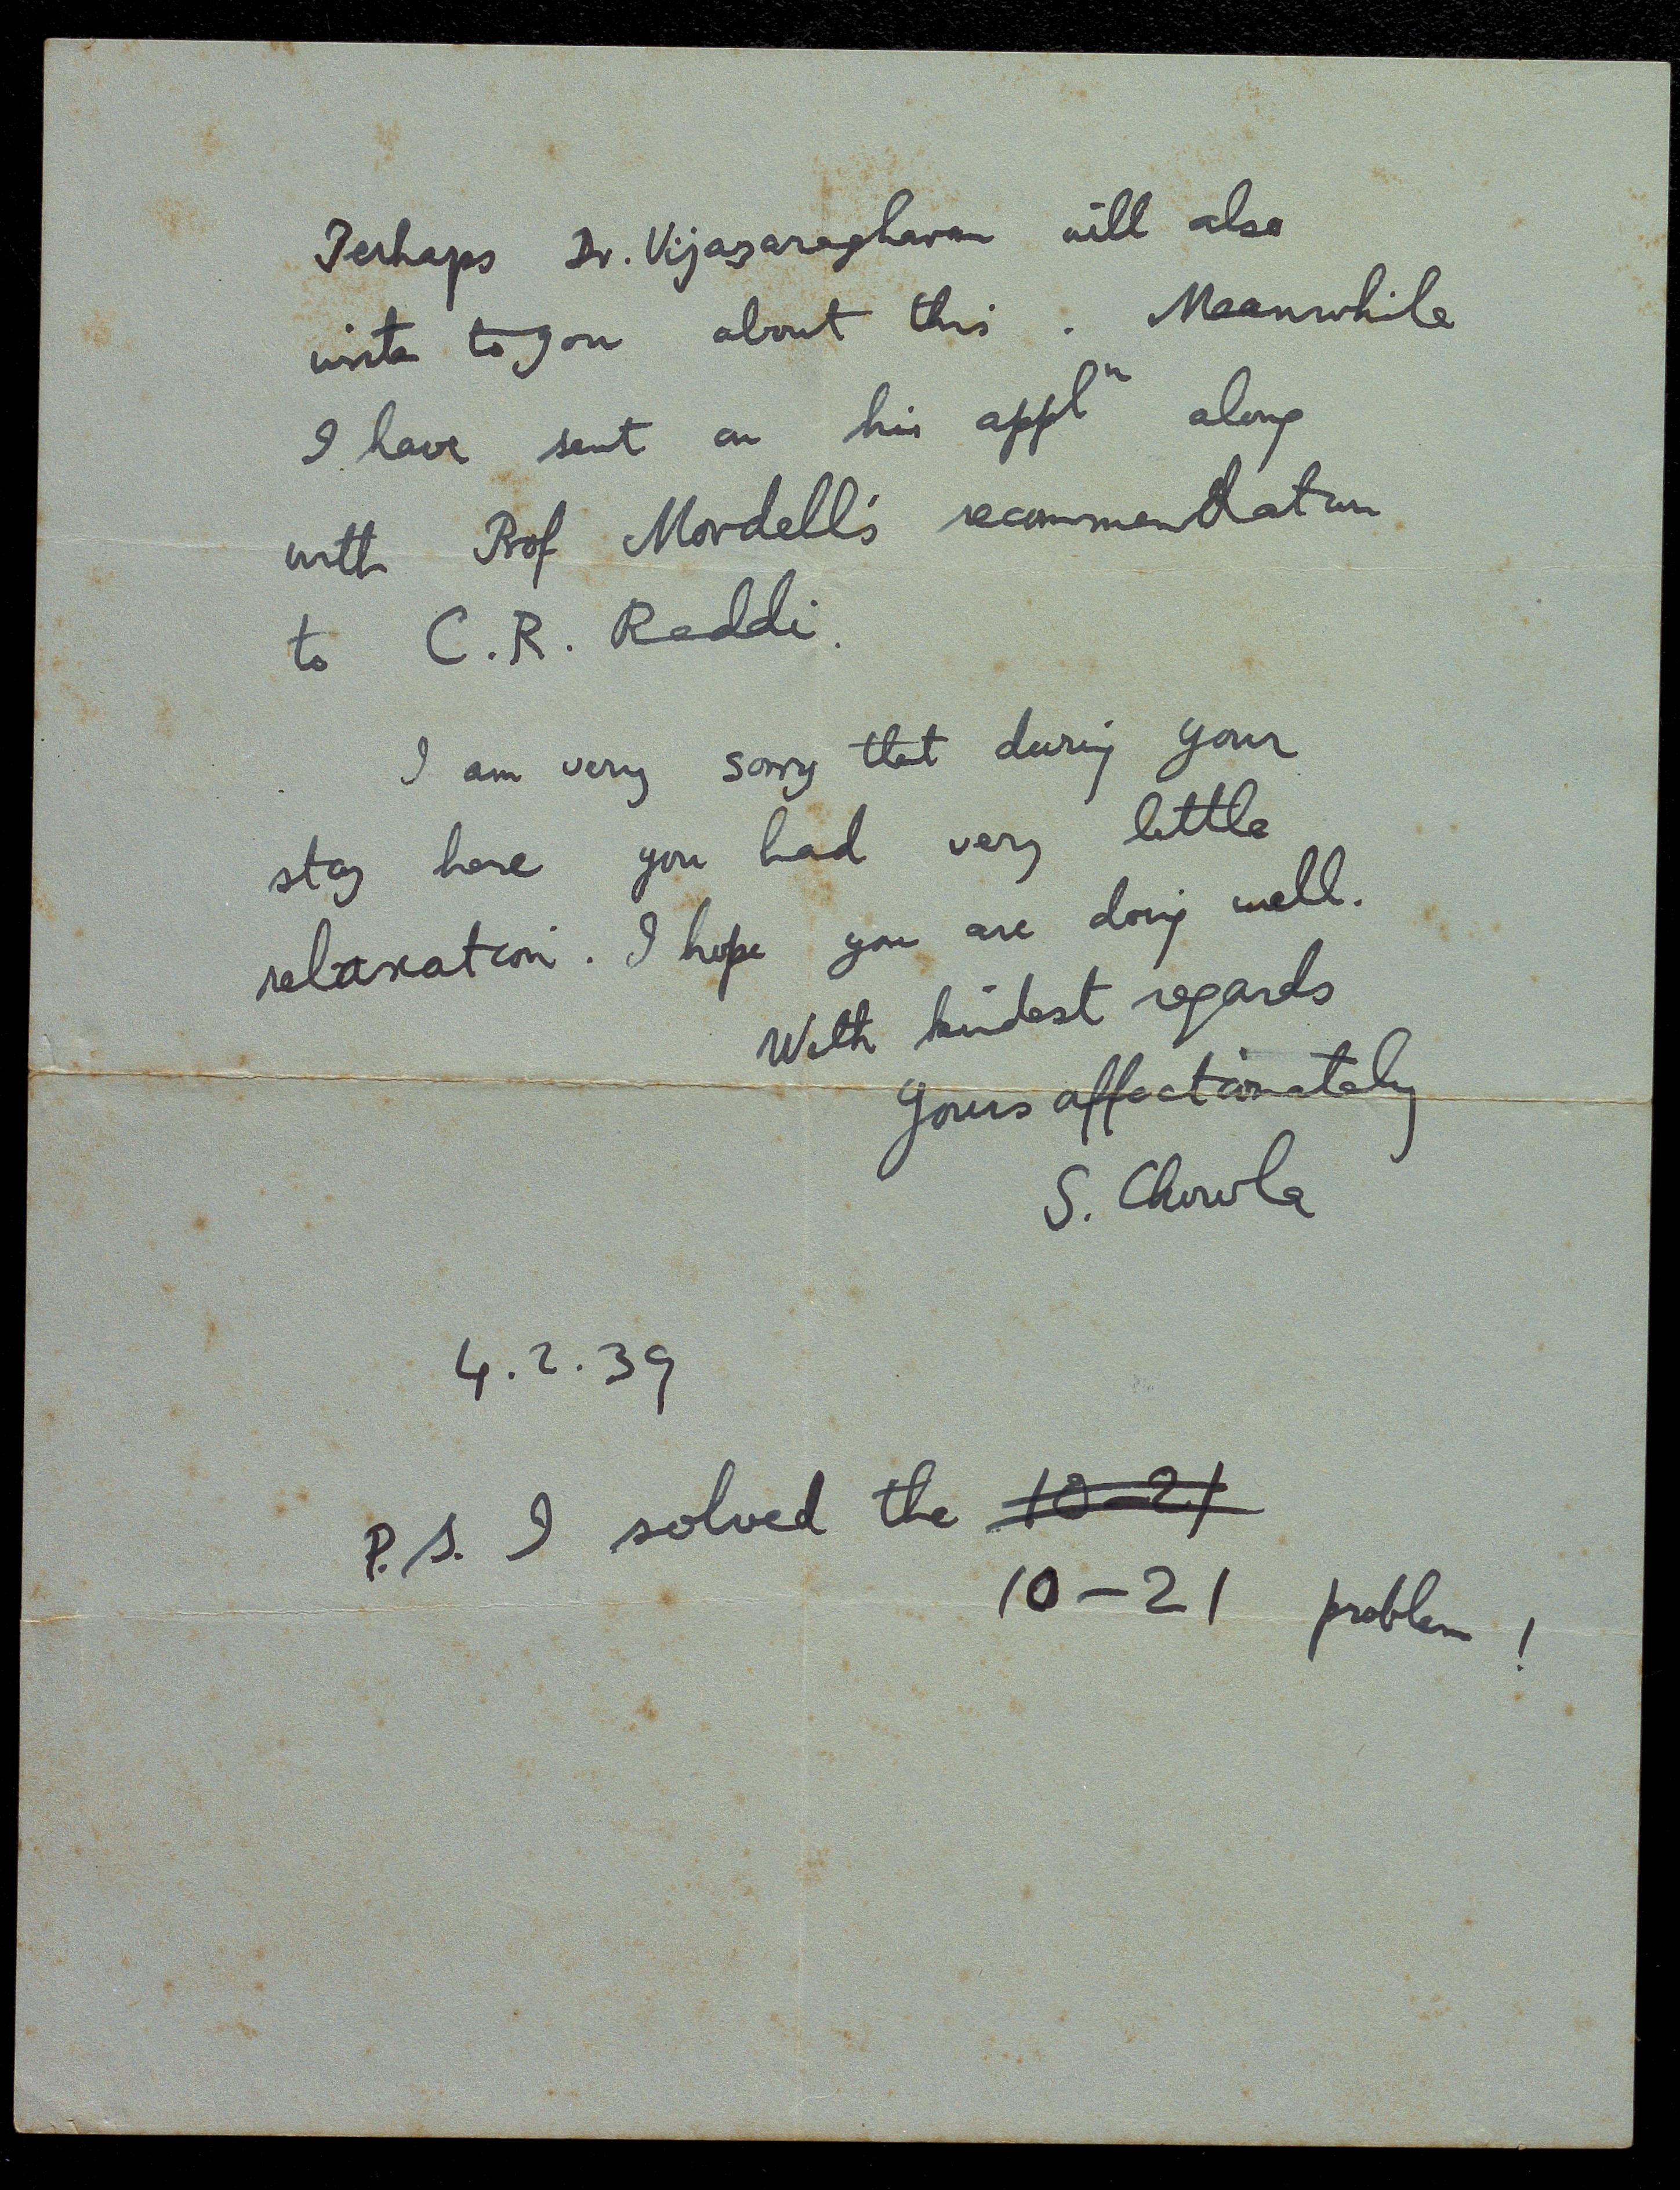 Perhaps Dr. Vijayaraghavan will also
write to you about this. Meanwhile
I have sent on his appl^n along
with Prof Mordell's recommendation
to C.R. Reddi.
I am very sorry that during your
stay here you had very little
relaxation. I hope you are doing well.
With kindest regards
Yours affectionately
S. Chowla
4.2.39
P.S. I solved the 10-21
10-21 problem!